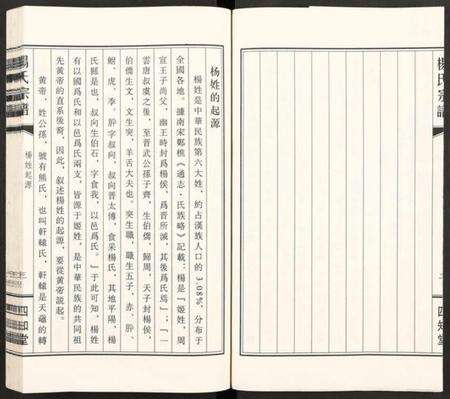 楊氏宗譜
四知堂
杨姓的起源
楊姓是中華民族第六大姓，約占漢族人口的 3.08%，分布于
全國各地。據南宋鄭樵《通志·氏族略》記載：楊是『姬姓，周
宣王子尚父，幽王時封爲楊侯，爲晋所滅，其後爲氏焉』；『一
雲唐叔虞之後，至晉武公孫子齊，生伯僑，歸周，天子封楊侯，
伯僑生文，文生突，羊舌大夫也。突生職，職生五子，赤、肸、
鮒、虎、季。肸字叔向，叔向晋太傅，食采楊氏，其地平陽，楊
氏縣是也，叔向生伯石，字食我，以邑爲氏。』于此可知，楊姓
有以國爲氏和以邑爲氏兩支，皆源于姬姓，是中華民族的共同祖
先黄帝的直系後裔，因此，叙述楊姓的起源，要從黄帝説起。
黄帝，姓公孫，號有熊氏，也叫軒轅氏，軒轅是天黿的轉
楊氏宗譜
楊姓起源
四知堂